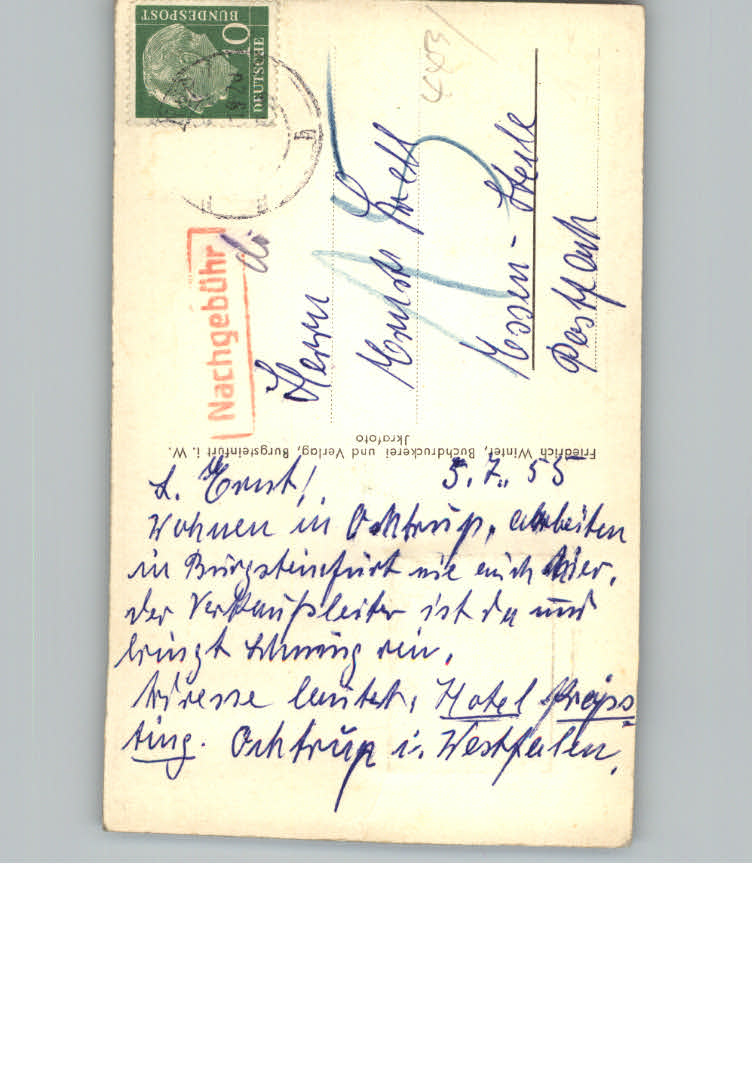 DEUTSCHE
BUNDESPOST
10
Nachgebühr
443
Herrn
Ernst
Essen-Steele
Postfach
Friedrich Winter, Buchdruckerei und Verlag, Burgsteinfurt i. W.
Jkrafoto
5.7.55
L. Ernst!
Wohnen in Ochtrup, arbeiten
in Burgsteinfurt wie auch hier,
der Verkaufsleiter ist da und
bringt Schwung rein.
Adresse lautet: Hotel
ting. Ochtrup i. Westfalen.